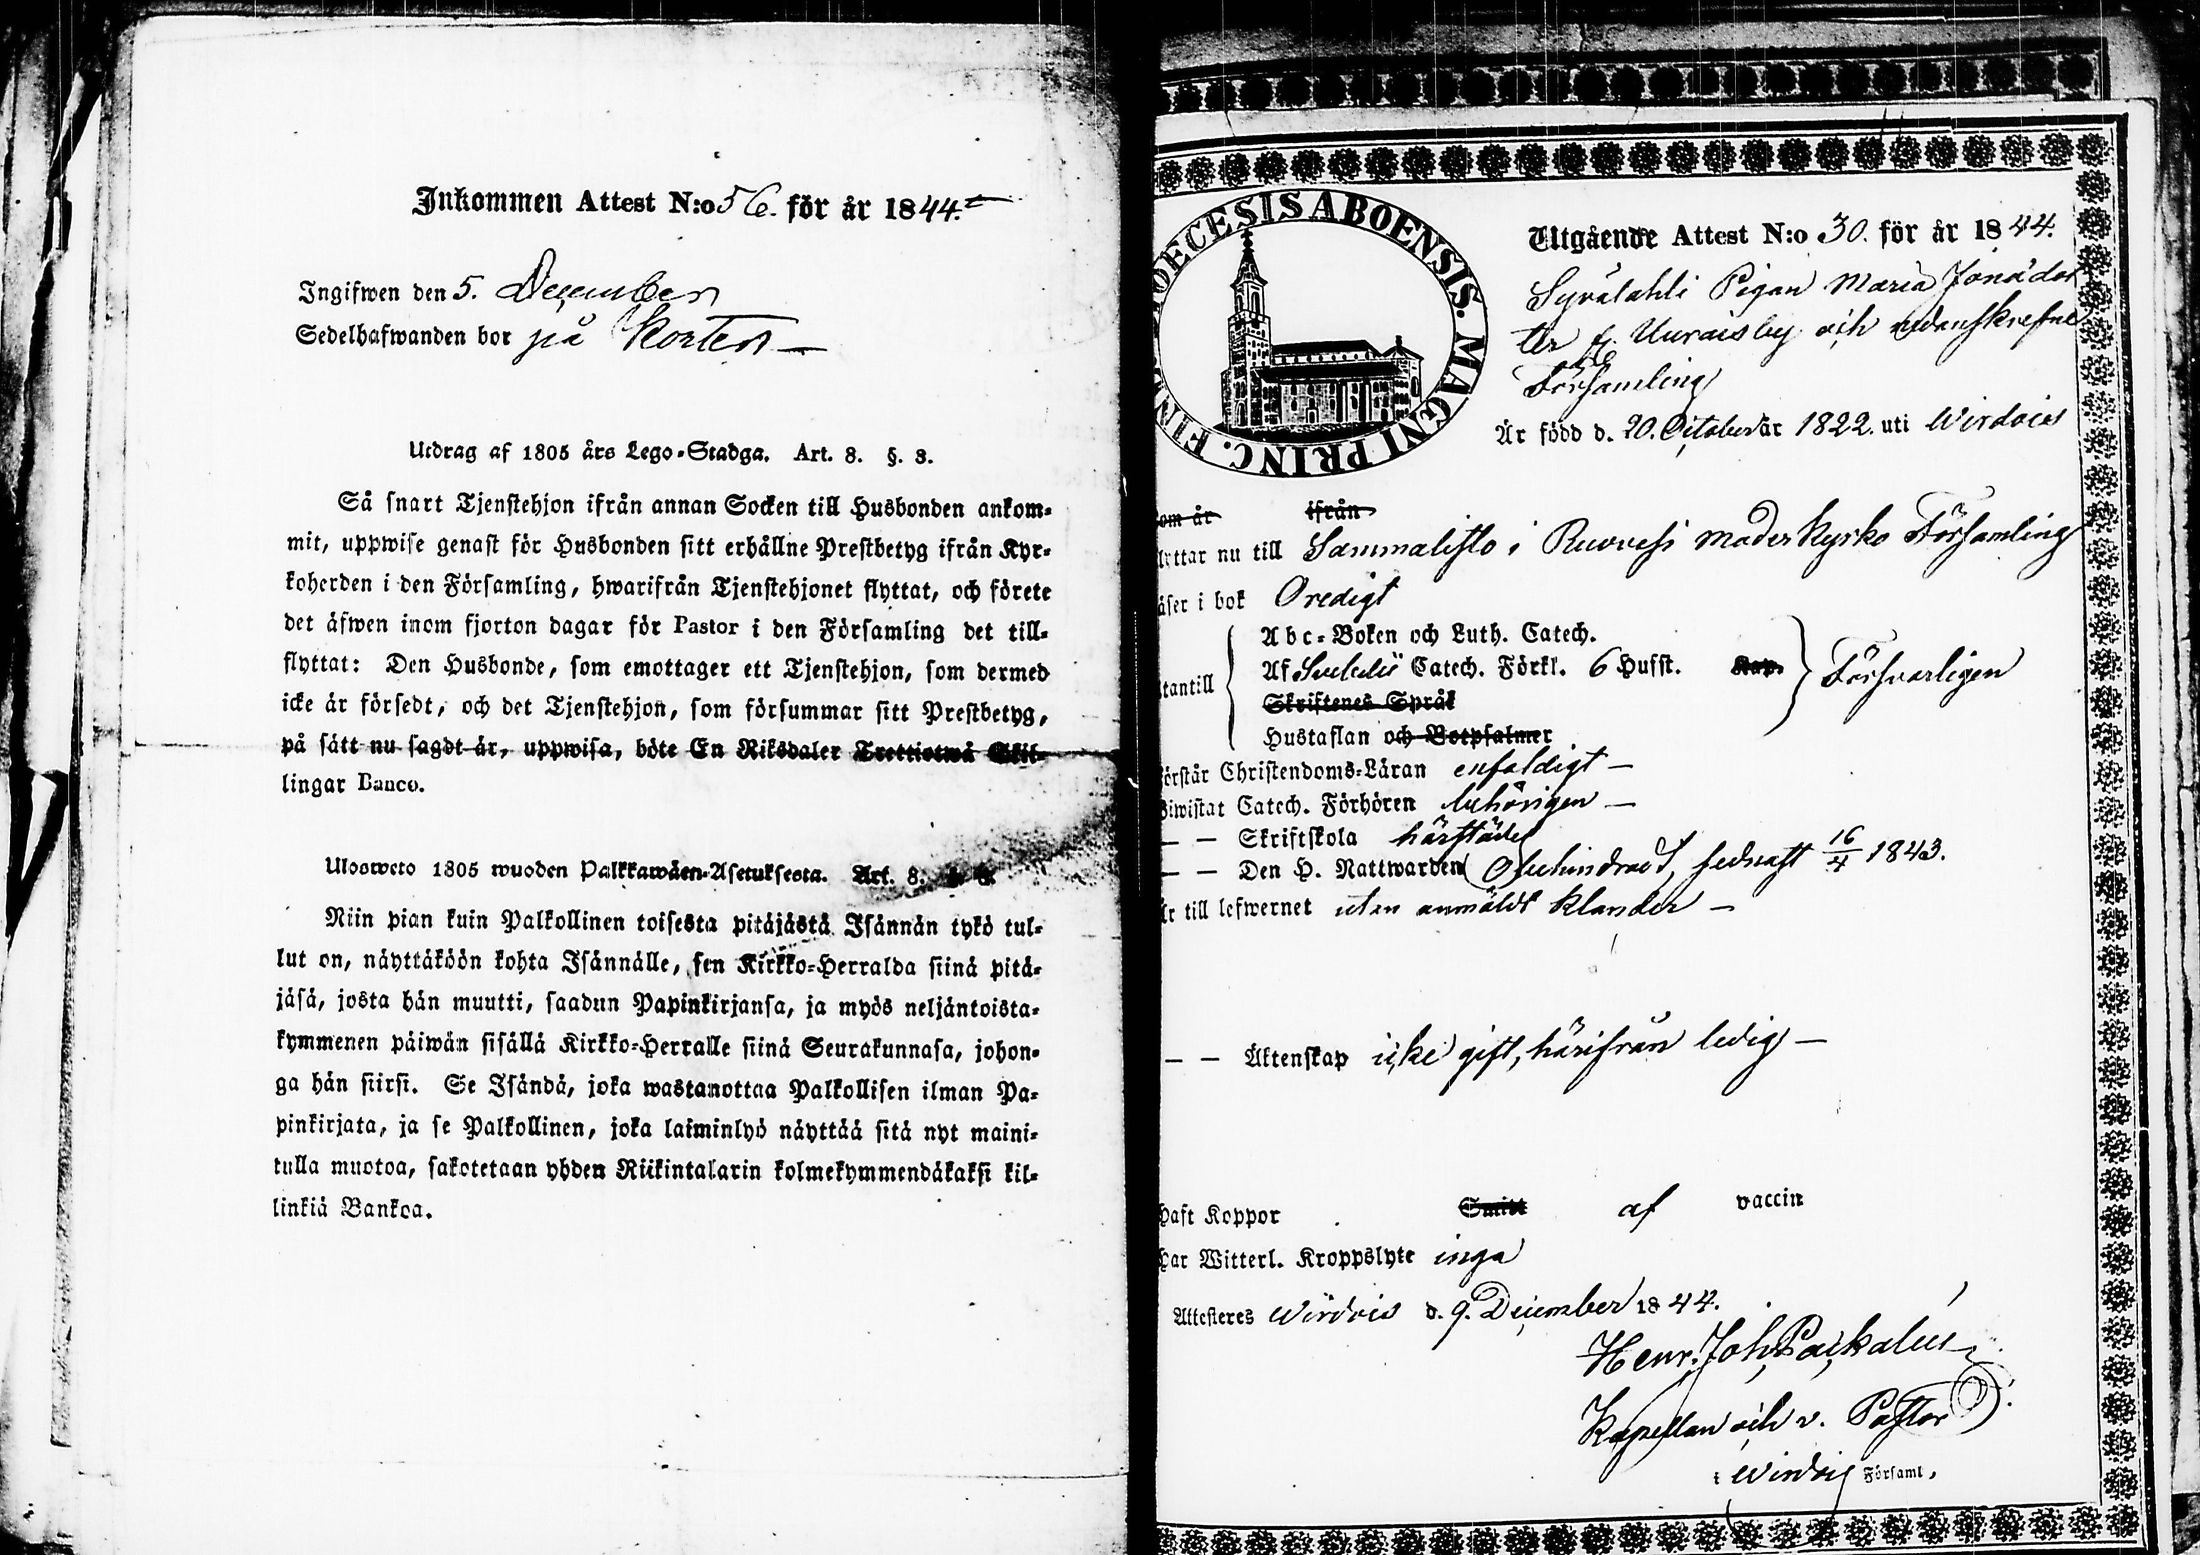 Inkommen Attest N:o 56. för år 1844.
Ingifwen den 5. December
Sedelhafwanden bor på Korten
Utdrag af 1805 års Lego-Stadga. Art. 8. §. 3.
Så snart Tjenstehjon ifrån annan Socken till Husbonden ankom-
mit, uppwise genast för Husbonden sitt erhållne Prestbetyg ifrån Kyr-
koherden i den Församling, hwarifrån Tjenstehjonet flyttat, och förete
det äfwen inom fjorton dagar för Pastor i den Församling det till-
flyttat: Den Husbonde, som emottager ett Tjenstehjon, som dermed
icke är försedt, och det Tjenstehjon, som försummar sitt Prestbetyg,
på sätt nu sagdt är, uppwisa, böte En Riksdaler Trettiotwå Skil-
lingar Banco.
Ulosweto 1805 wuoden Palkkawäen-Asetuksesta. Art. 8.
Niin pian kuin Palkollinen toisesta pitäjästä Isännän tykö tul-
lut on, näyttäköön kohta Isännälle, sen Kirkko-Herralda siinä pitä-
jäsä, josta hän muutti, saadun Papinkirjansa, ja myös neljäntoista-
kymmenen päiwän sisällä Kirkko-Herralle siinä Seurakunnasa, johon-
ga hän siirsi. Se Isändä, joka wastanottaa Palkollisen ilman Pa-
pinkirjata, ja se Palkollinen, joka laiminlyö näyttää sitä nyt maini-
tulla muotoa, sakotetaan yhden Riikintalarin kolmekymmendäkaksi kil-
linkiä Bankoa.
DIOECESIS ABOENSIS. MAGNI PRINC. FIN
Utgående Attest N:o 30. för år 1844.
Pigan Maria Jonædot
ter fr. Uuraisby och nedanskrefne
Församling
Är född d. 20. October år 1822. uti Wirdois
om är ifrån
lyttar nu till Sammalisto i Ruovesi moderkyrko Församling
äser i bok Oredigt
Abc-Boken och Luth. Catech.
Af Svebelii Catech. Förkl. 6 Husst. Kap. Försvarligen
tantill
Skriftenes Språk
Hustaflan och Botpsalmer
örstår Christendoms-Läran enfaldigt
iwistat Catech. Förhören behörigen
— — Skriftskola härstädes
— — Den H. Nattwarden Obehindrad, sednast 16/4 1843.
r till lefwernet utan anmäldt klander
— — Äktenskap icke gift, härifrån ledig
haft Koppor Smitt af vaccin
har Witterl. Kroppslyte inga
Attesteres Wirdois d. 9. December 1844.
Henr. Joh. Packalén
Kapellan och v. Pastor
i Wirdois Församl.